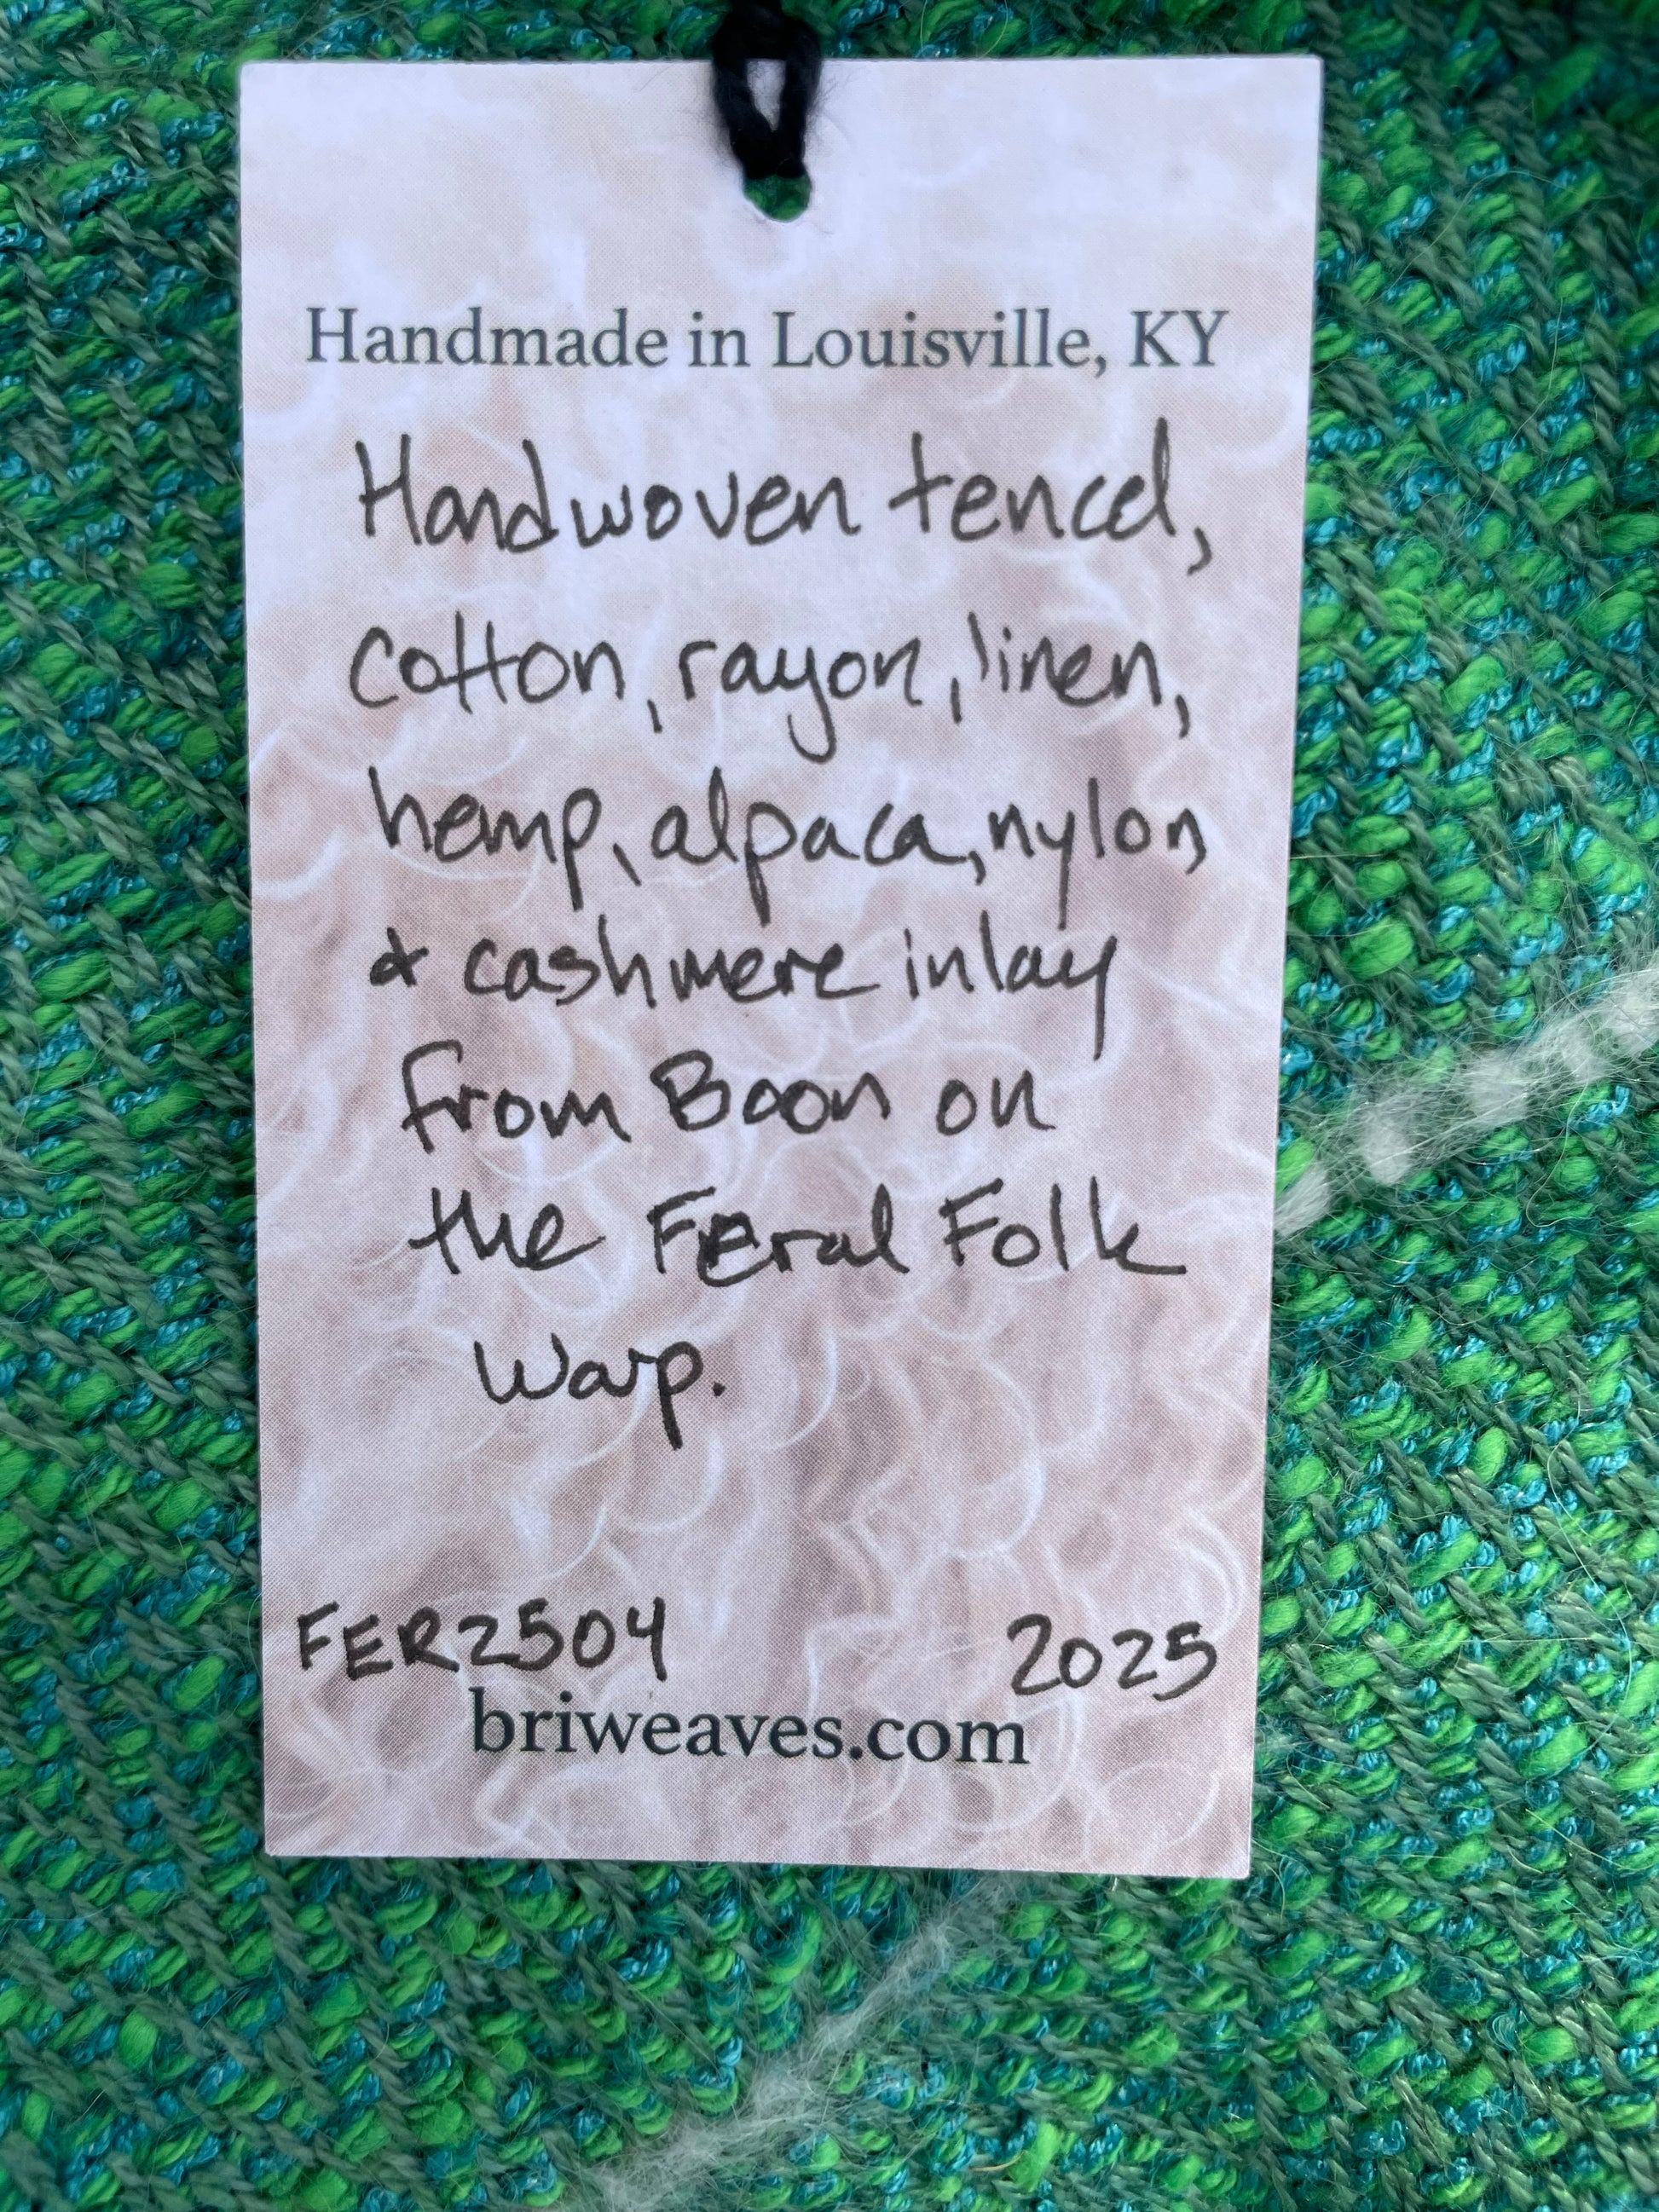 Handmade in Louisville, KY
Handwoven tencel,
cotton, rayon, linen,
hemp, alpaca, nylon
& cashmere inlay
from Boon on
the Feral Folk
Warp.
FER2504 2025
briweaves.com